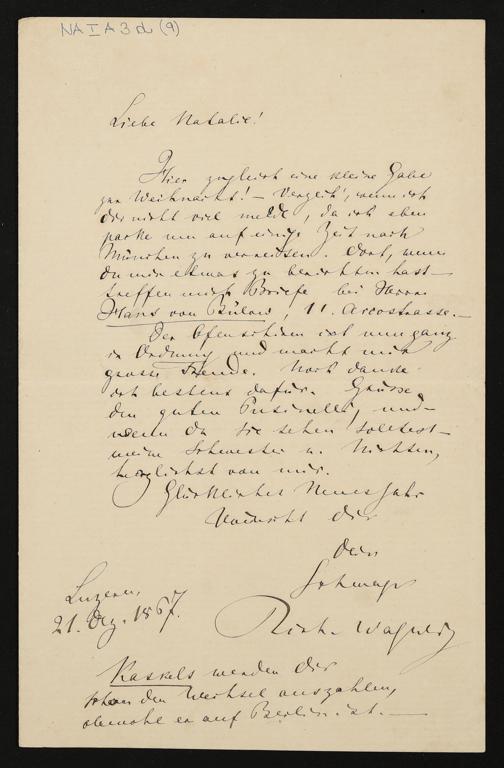 NA I A 3d (9)
Liebe Natalie!
Hier zugleich eine kleine Gabe
zur Weihnacht! – Verzeih', wenn ich
dir nicht viel melde, da ich eben
packe um auf einige Zeit nach
München zu verreisen. Dort, wenn
du mir etwas zu berichten hast
treffen mich Briefe bei Herrn
Hans von Bülow, 11. Arcostrasse. –
Der Ofenschirm ist nun ganz
in Ordnung und macht mir
grosse Freude. Noch danke
ich bestens dafür. Grüsse
den guten Pusinelli, und
wenn du sie sehen solltest –
meine Schwester u. Nichten,
herzlichst von mir.
Glückliches Neues Jahr
wünscht dir
dein
Schwager
Rich. Wagner
Luzern,
21. Dez. 1867.
Kaskels werden dir
schon den Wechsel auszahlen,
obwohl er auf Berlin ist. –